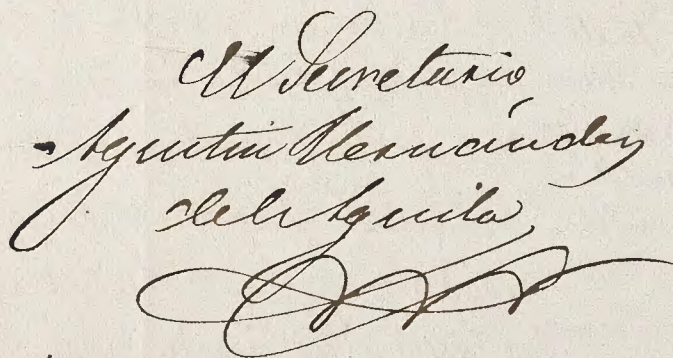 El Secretario,
Agustin Hernández
del Aguila